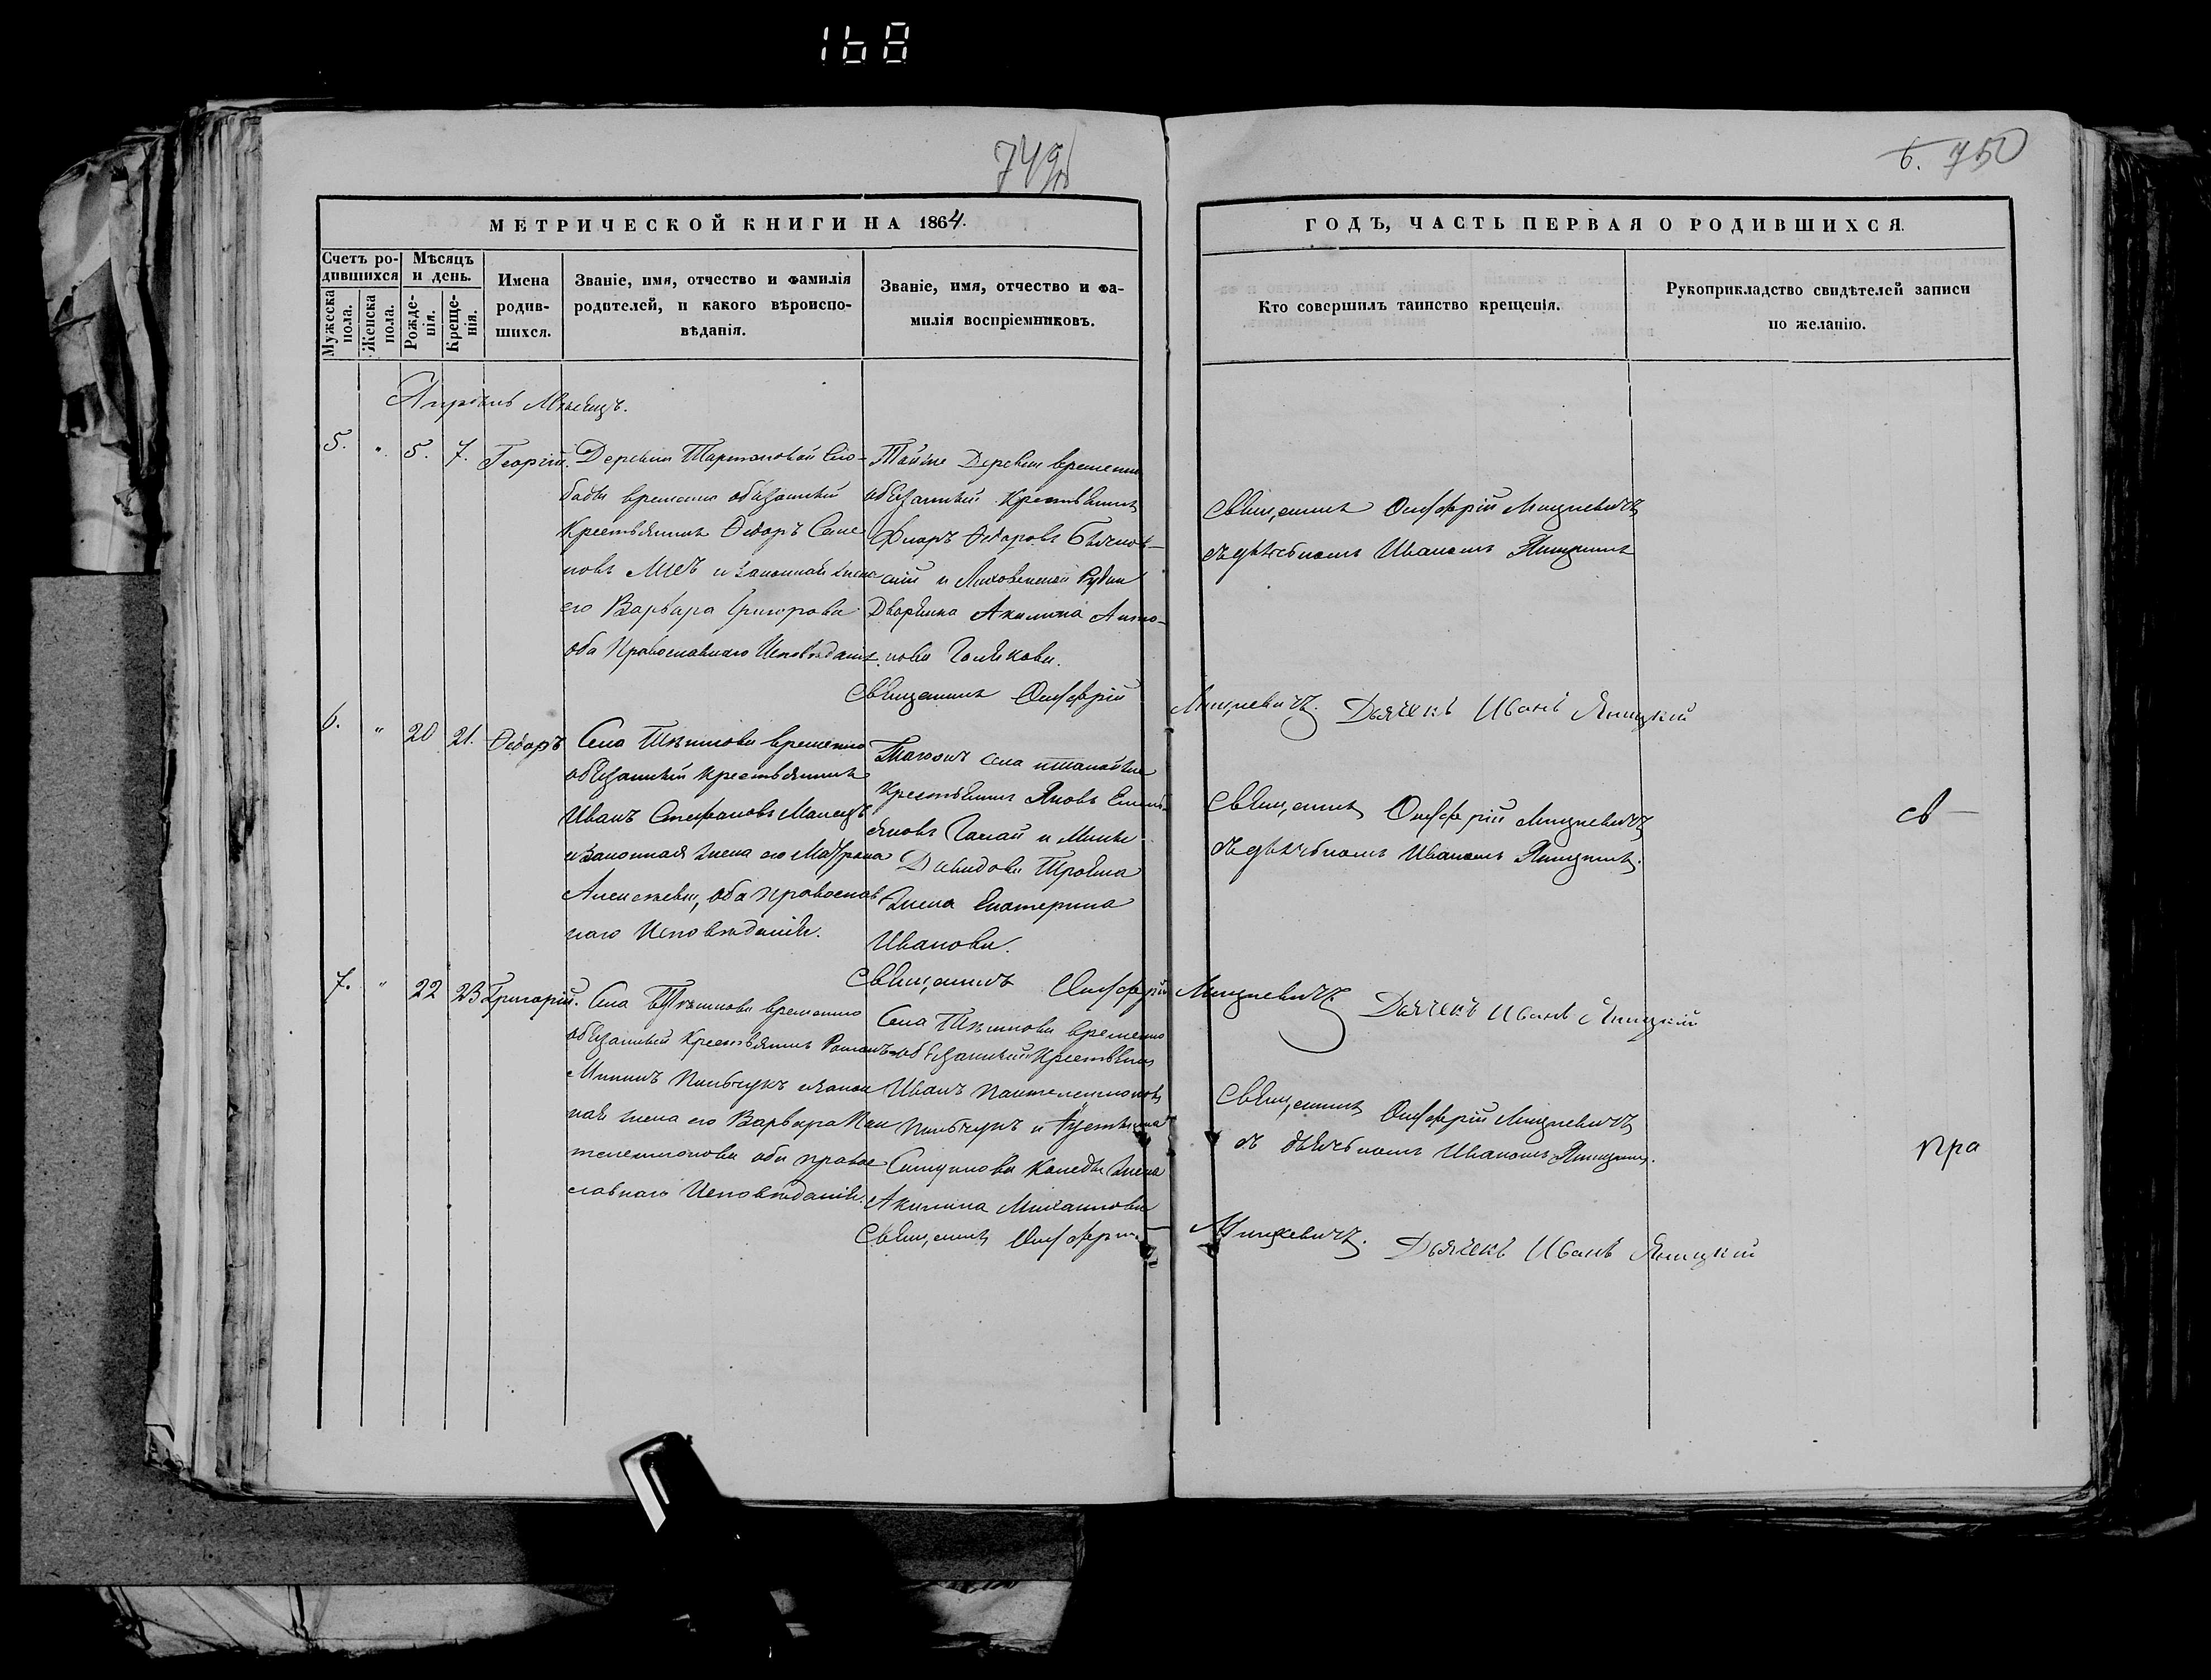 168
749
6. 750
МЕТРИЧЕСКОЙ КНИГИ НА 1864.
ГОДЪ, ЧАСТЬ ПЕРВАЯ О РОДИВШИХСЯ.
Счетъ ро-
дившихся
Мужеска пола.
Женска пола.
Мѣсяцъ
и день.
Рожде-
нія.
Креще-
нія.
Имена
родив-
шихся.
Званіе, имя, отчество и фамилія
родителей, и какого вѣроиспо-
вѣданія.
Званіе, имя, отчество и фа-
милія воспріемниковъ.
Кто совершилъ таинство крещенія.
Рукоприкладство свидѣтелей записи
по желанію.
Апрѣль Мѣсяцъ.
5. " 5. 7. Георгій.
Деревни Тартаковой Сло-
боды временно обязанный
Крестьянинъ Ѳедоръ Семе
новъ и законная жена
его Варвара Григорова
оба Православнаго Исповѣданія.
Тойже Деревни временно
обязанный Крестьянинъ
Ѳедоровъ
скій и Рудни
Дворянка Акилина Анто-
нова Голякова.
Священникъ Онуфрій Мицкевичъ
съ дьячкомъ Иваномъ Яницкимъ
Священникъ Онуфрій Мицкевичъ. Дьячекъ Иванъ Яницкій
6. " 20 21. Ѳедоръ
Села временно
обязанный крестьянинъ
Иванъ Стефановъ
и законная жена его Матрона
Алексеева, оба православ
наго Исповѣданія.
Тогожъ села и такойже
Крестьянинъ Яковъ Емель-
яновъ Галай и
Давидова
жена Екатерина
Иванова.
Священникъ Онуфрій Мицкевичъ
съ дьячкомъ Иваномъ Яницкимъ.
св —
Священникъ Онуфрій Мицкевичъ. Дьячекъ Иванъ Яницкій
7. " 22 23 Григорій.
Села временно
обязанный Крестьянинъ Романъ
Мининъ и закон
ная жена его Варвара Пан
телеимонова оба право
славнаго Исповѣданія.
Села временно
обязанный Крестьянинъ
Иванъ Пантелеимоновъ
и
жена
Акилина Михаилова
Священникъ Онуфрій Мицкевичъ
съ дьячкомъ Иваномъ Яницкимъ.
пра
Священникъ Онуфрій Мицкевичъ. Дьячекъ Иванъ Яницкій